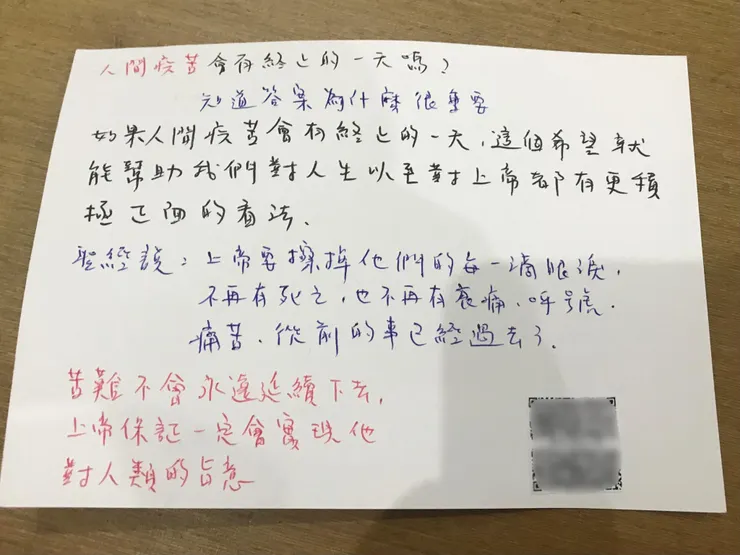 人間疾苦會有終止的一天嗎？
知道答案為什麼很重要
如果人間疾苦會有終止的一天，這個希望就
能幫助我們對人生以至對上帝都有更積
極正面的看法．
聖經說：上帝要擦掉他們的每一滴眼淚，
不再有死亡，也不再有哀痛、呼號、
痛苦、從前的事已經過去了．
苦難不會永遠延續下去，
上帝保証一定會實現他
對人類的旨意